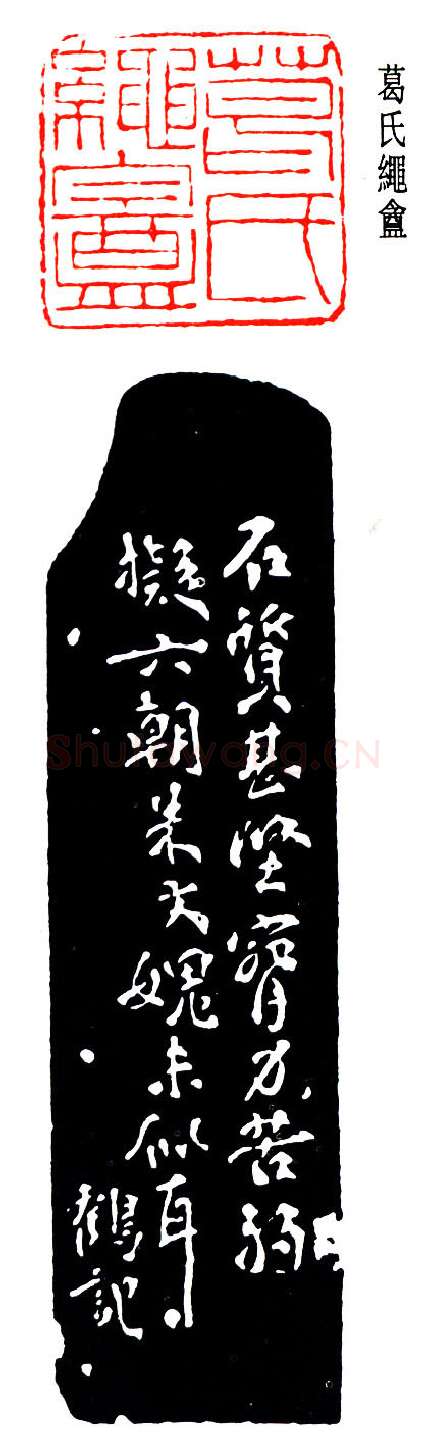 葛氏繩盦
葛氏
繩盦
石質甚堅膂力苦弱
擬六朝朱文媿未似耳
鶴記
Shufawang.CN